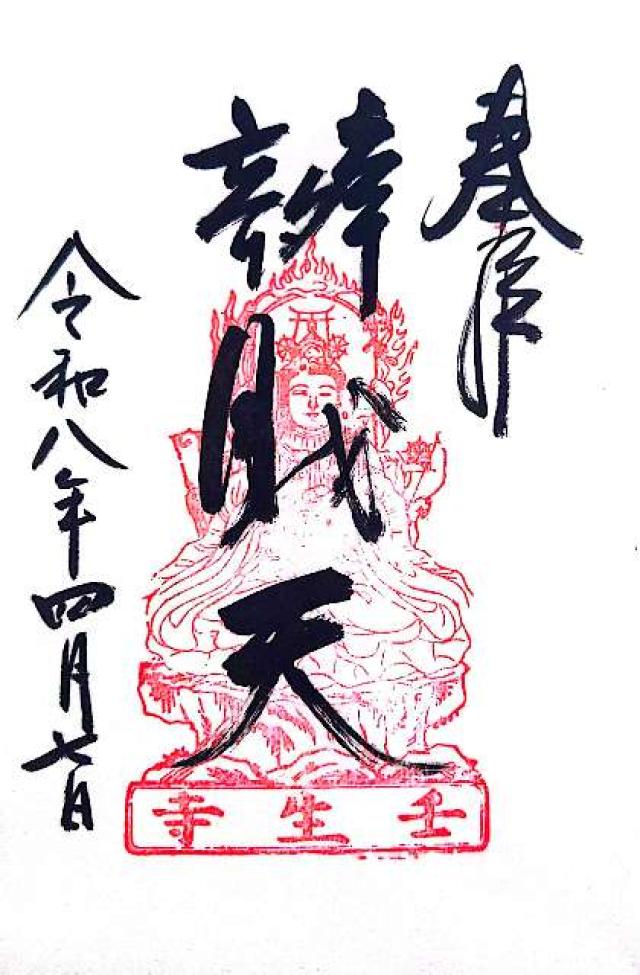 奉拝
辨財天
令和八年四月七日
壬生寺